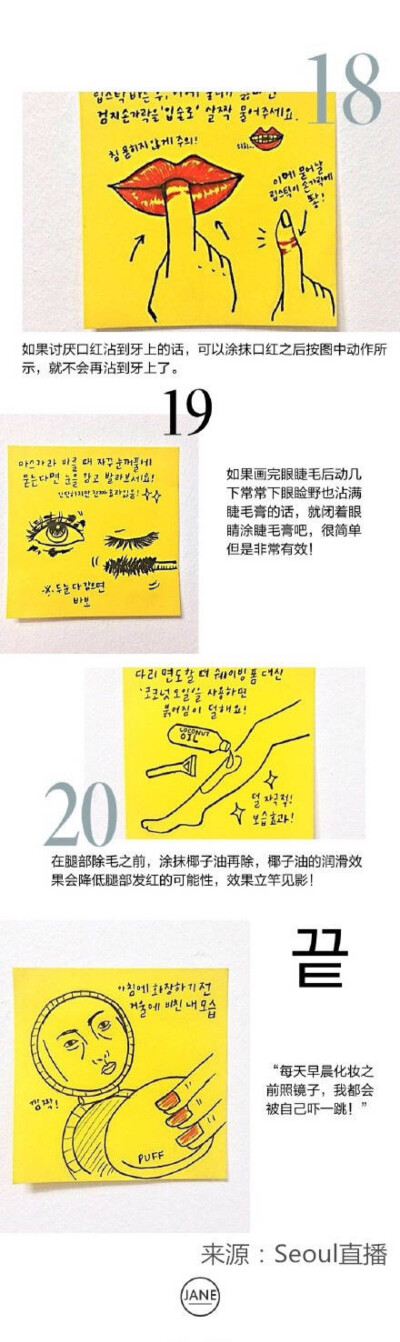 18
검지손가락을 '입술로' 살짝 물어주세요.
침 흘리지 않게 주의!
이때 묻어날
립스틱이 손가락에
뙇!
如果讨厌口红沾到牙上的话，可以涂抹口红之后按图中动作所
示，就不会再沾到牙上了。
19
마스카라 바를 때 자꾸 눈꺼풀에
묻는다면 눈을 감고 발라보세요!
※두눈 다 감으면
바보
如果画完眼睫毛后动几
下常常下眼睑野也沾满
睫毛膏的话，就闭着眼
睛涂睫毛膏吧，很简单
但是非常有效！
다리 면도할 때 쉐이빙 폼 대신
'코코넛 오일'을 사용하면
붉어짐이 덜해요!
COCONUT
OIL
덜 자극적!
보습효과!
20
在腿部除毛之前，涂抹椰子油再除，椰子油的润滑效
果会降低腿部发红的可能性，效果立竿见影！
끝
아침에 화장하기 전
거울에 비친 내 모습
깜짝!
PUFF
“每天早晨化妆之
前照镜子，我都会
被自己吓一跳！”
来源：Seoul直播
JANE